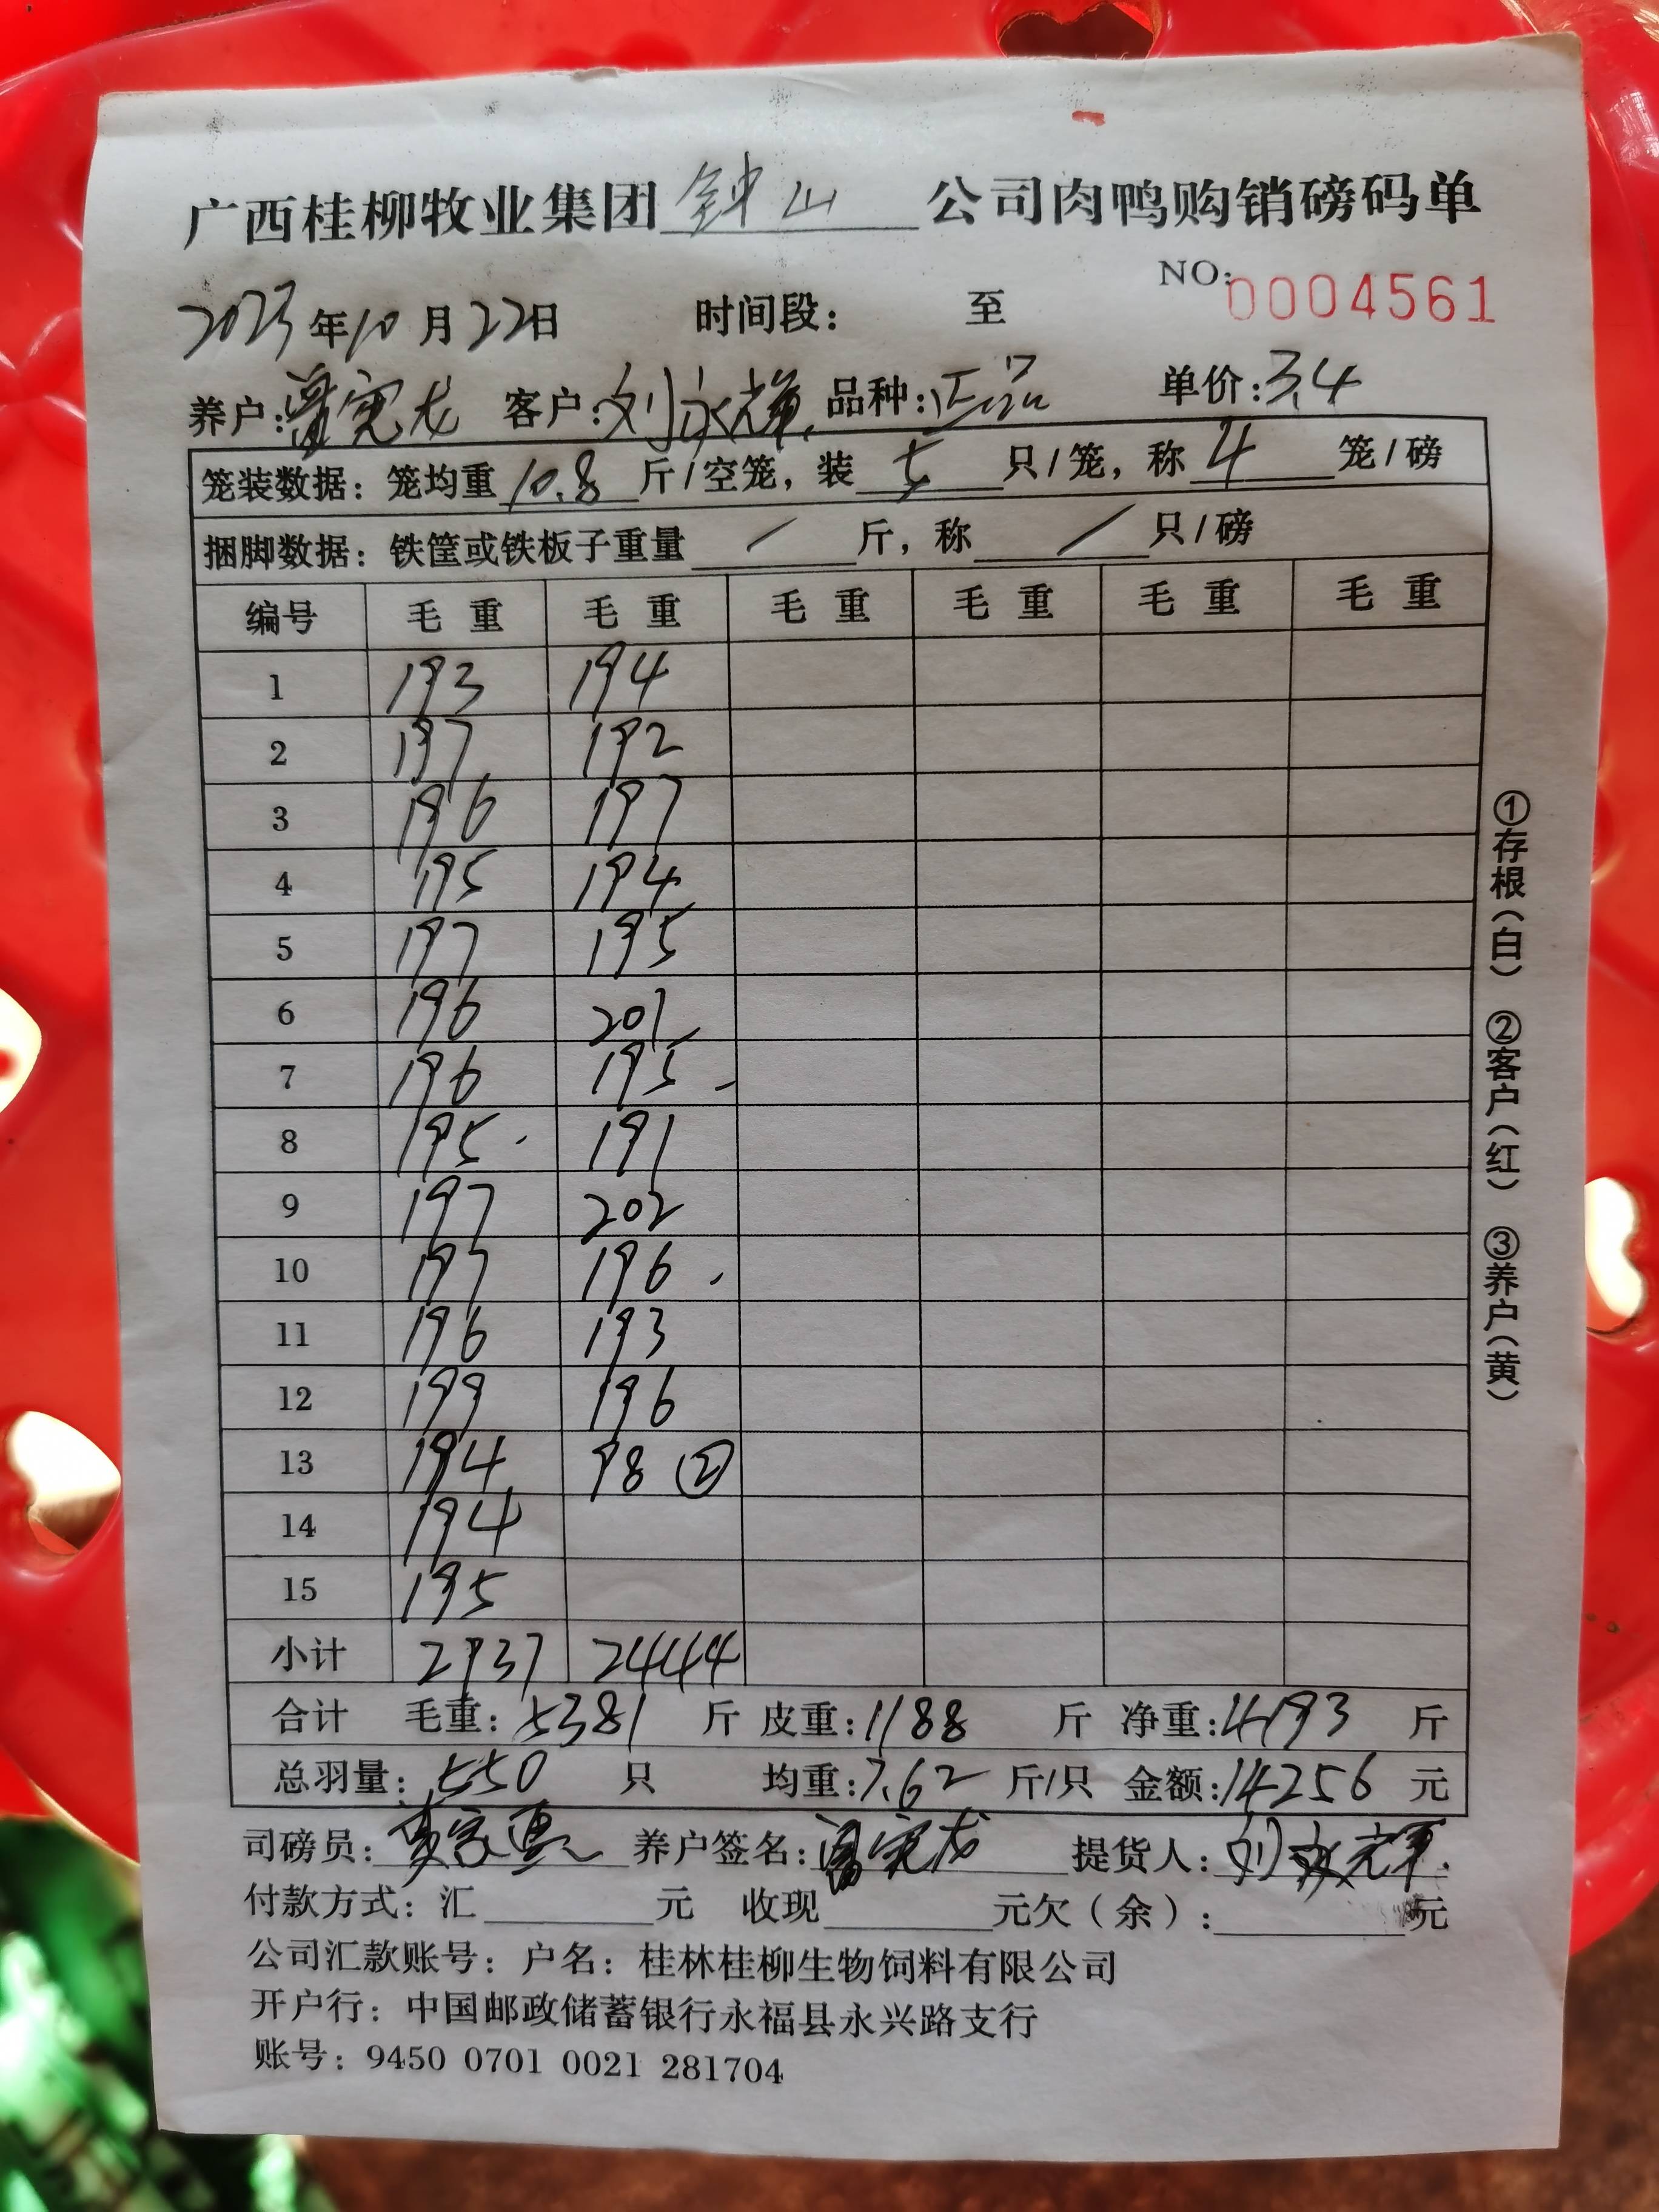 广西桂柳牧业集团 钟山 公司肉鸭购销磅码单
NO: 0004561
2023年10月22日 时间段: 至
养户: 宪龙 客户: 刘永辉 品种: 正品 单价: 3.4
笼装数据: 笼均重 10.8 斤/空笼, 装 5 只/笼, 称 4 笼/磅
捆脚数据: 铁筐或铁板子重量 / 斤, 称 / 只/磅
编号 毛重 毛重 毛重 毛重 毛重 毛重
1 193 194
2 197 192
3 196 197
4 195 194
5 197 195
6 196 201
7 196 195
8 195 191
9 197 202
10 197 196
11 196 193
12 199 196
13 194 98 ②
14 194
15 195
小计 2937 2444
合计 毛重: 5381 斤 皮重: 1188 斤 净重: 4193 斤
总羽量: 550 只 均重: 7.62 斤/只 金额: 14256 元
司磅员: 养户签名: 宪龙 提货人: 刘永辉
付款方式: 汇 元 收现 元欠(余): 元
公司汇款账号: 户名: 桂林桂柳生物饲料有限公司
开户行: 中国邮政储蓄银行永福县永兴路支行
账号: 9450 0701 0021 281704
①存根(白) ②客户(红) ③养户(黄)